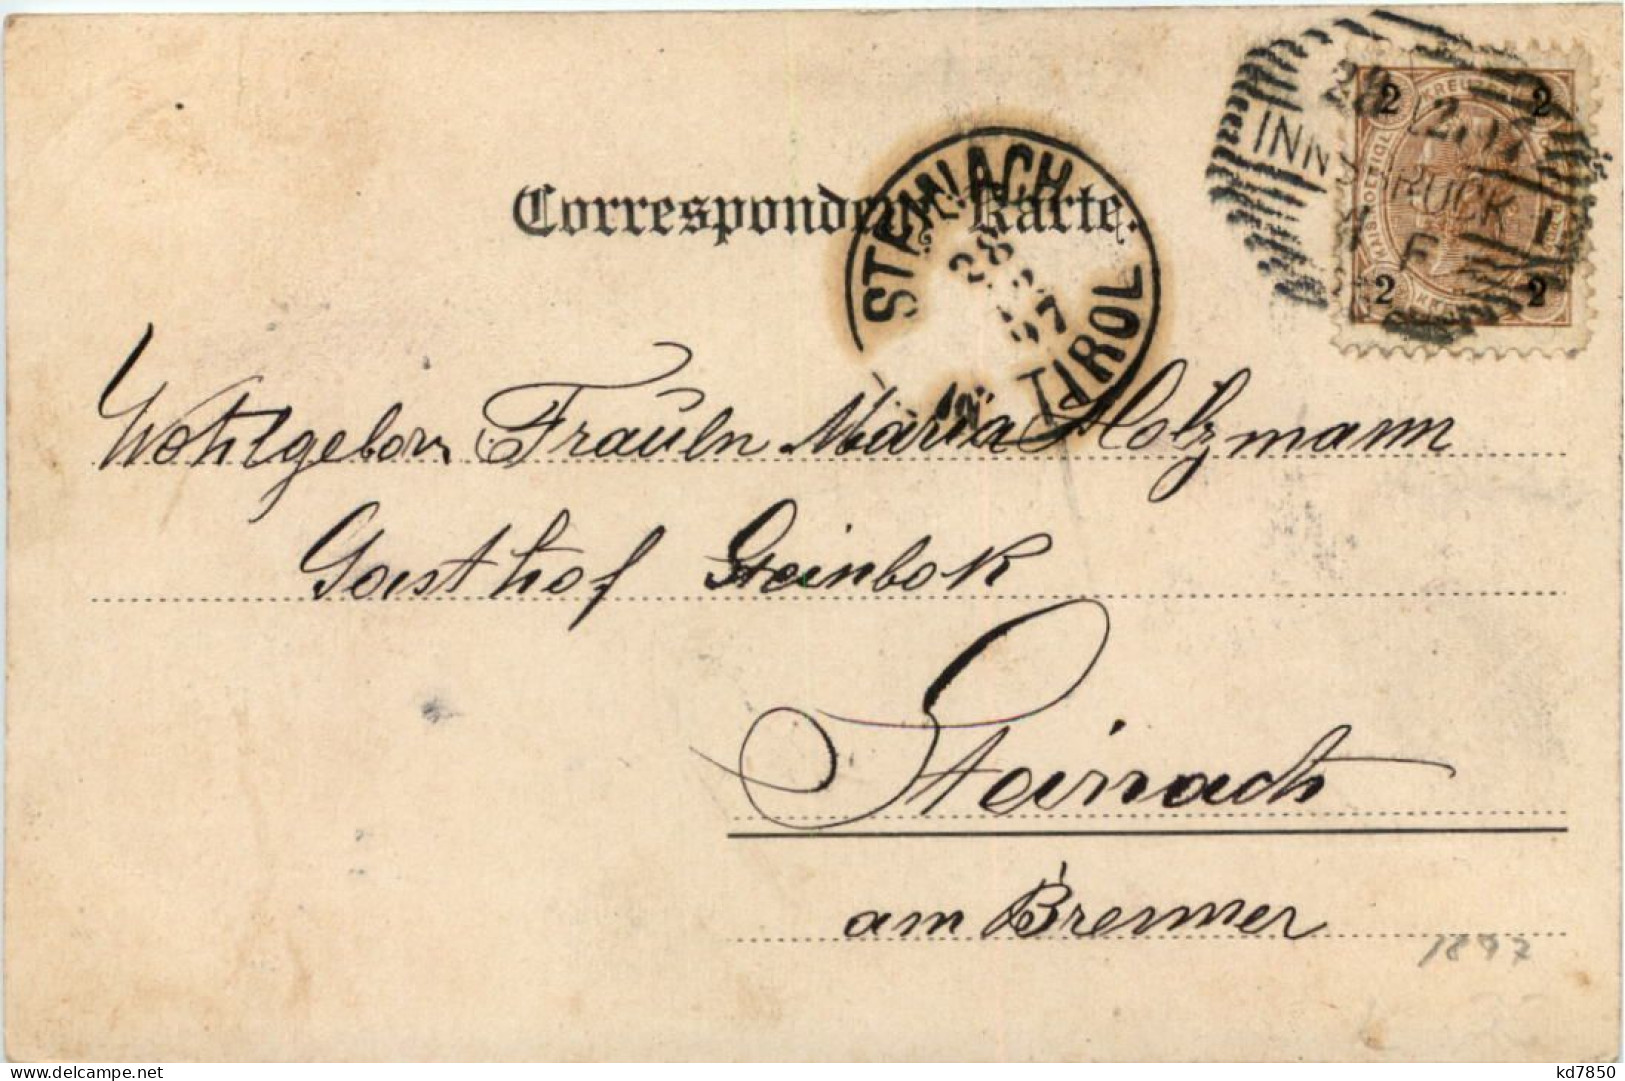 Correspondenz-Karte.
STEINACH
28
97
TIROL
28 12.97
INNSBRUCK 1
F
2 2
2 2
Wohlgeborn Fräuln Maria Holzmann
Gasthof Steinbok
Steinach
am Brenner
1897
kd7850